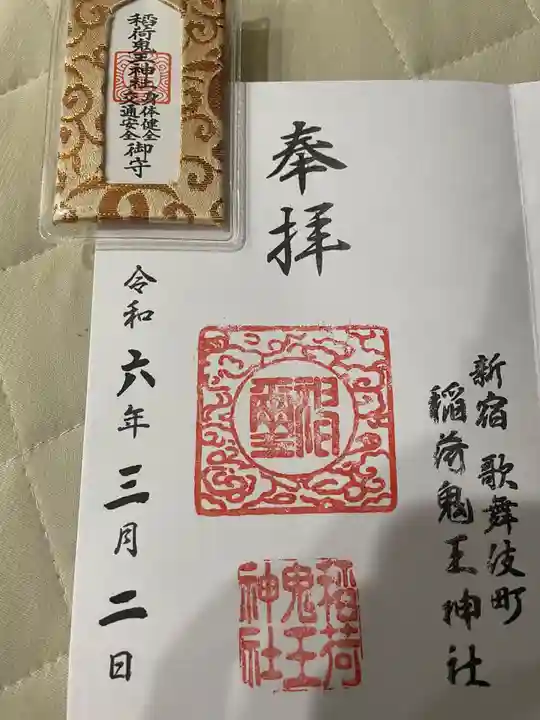 稲荷鬼王神社
身体健全
交通安全
御守
奉拝
新宿 歌舞伎町
稲荷鬼王神社
神璽
稲荷
鬼王
神社
令和六年三月二日